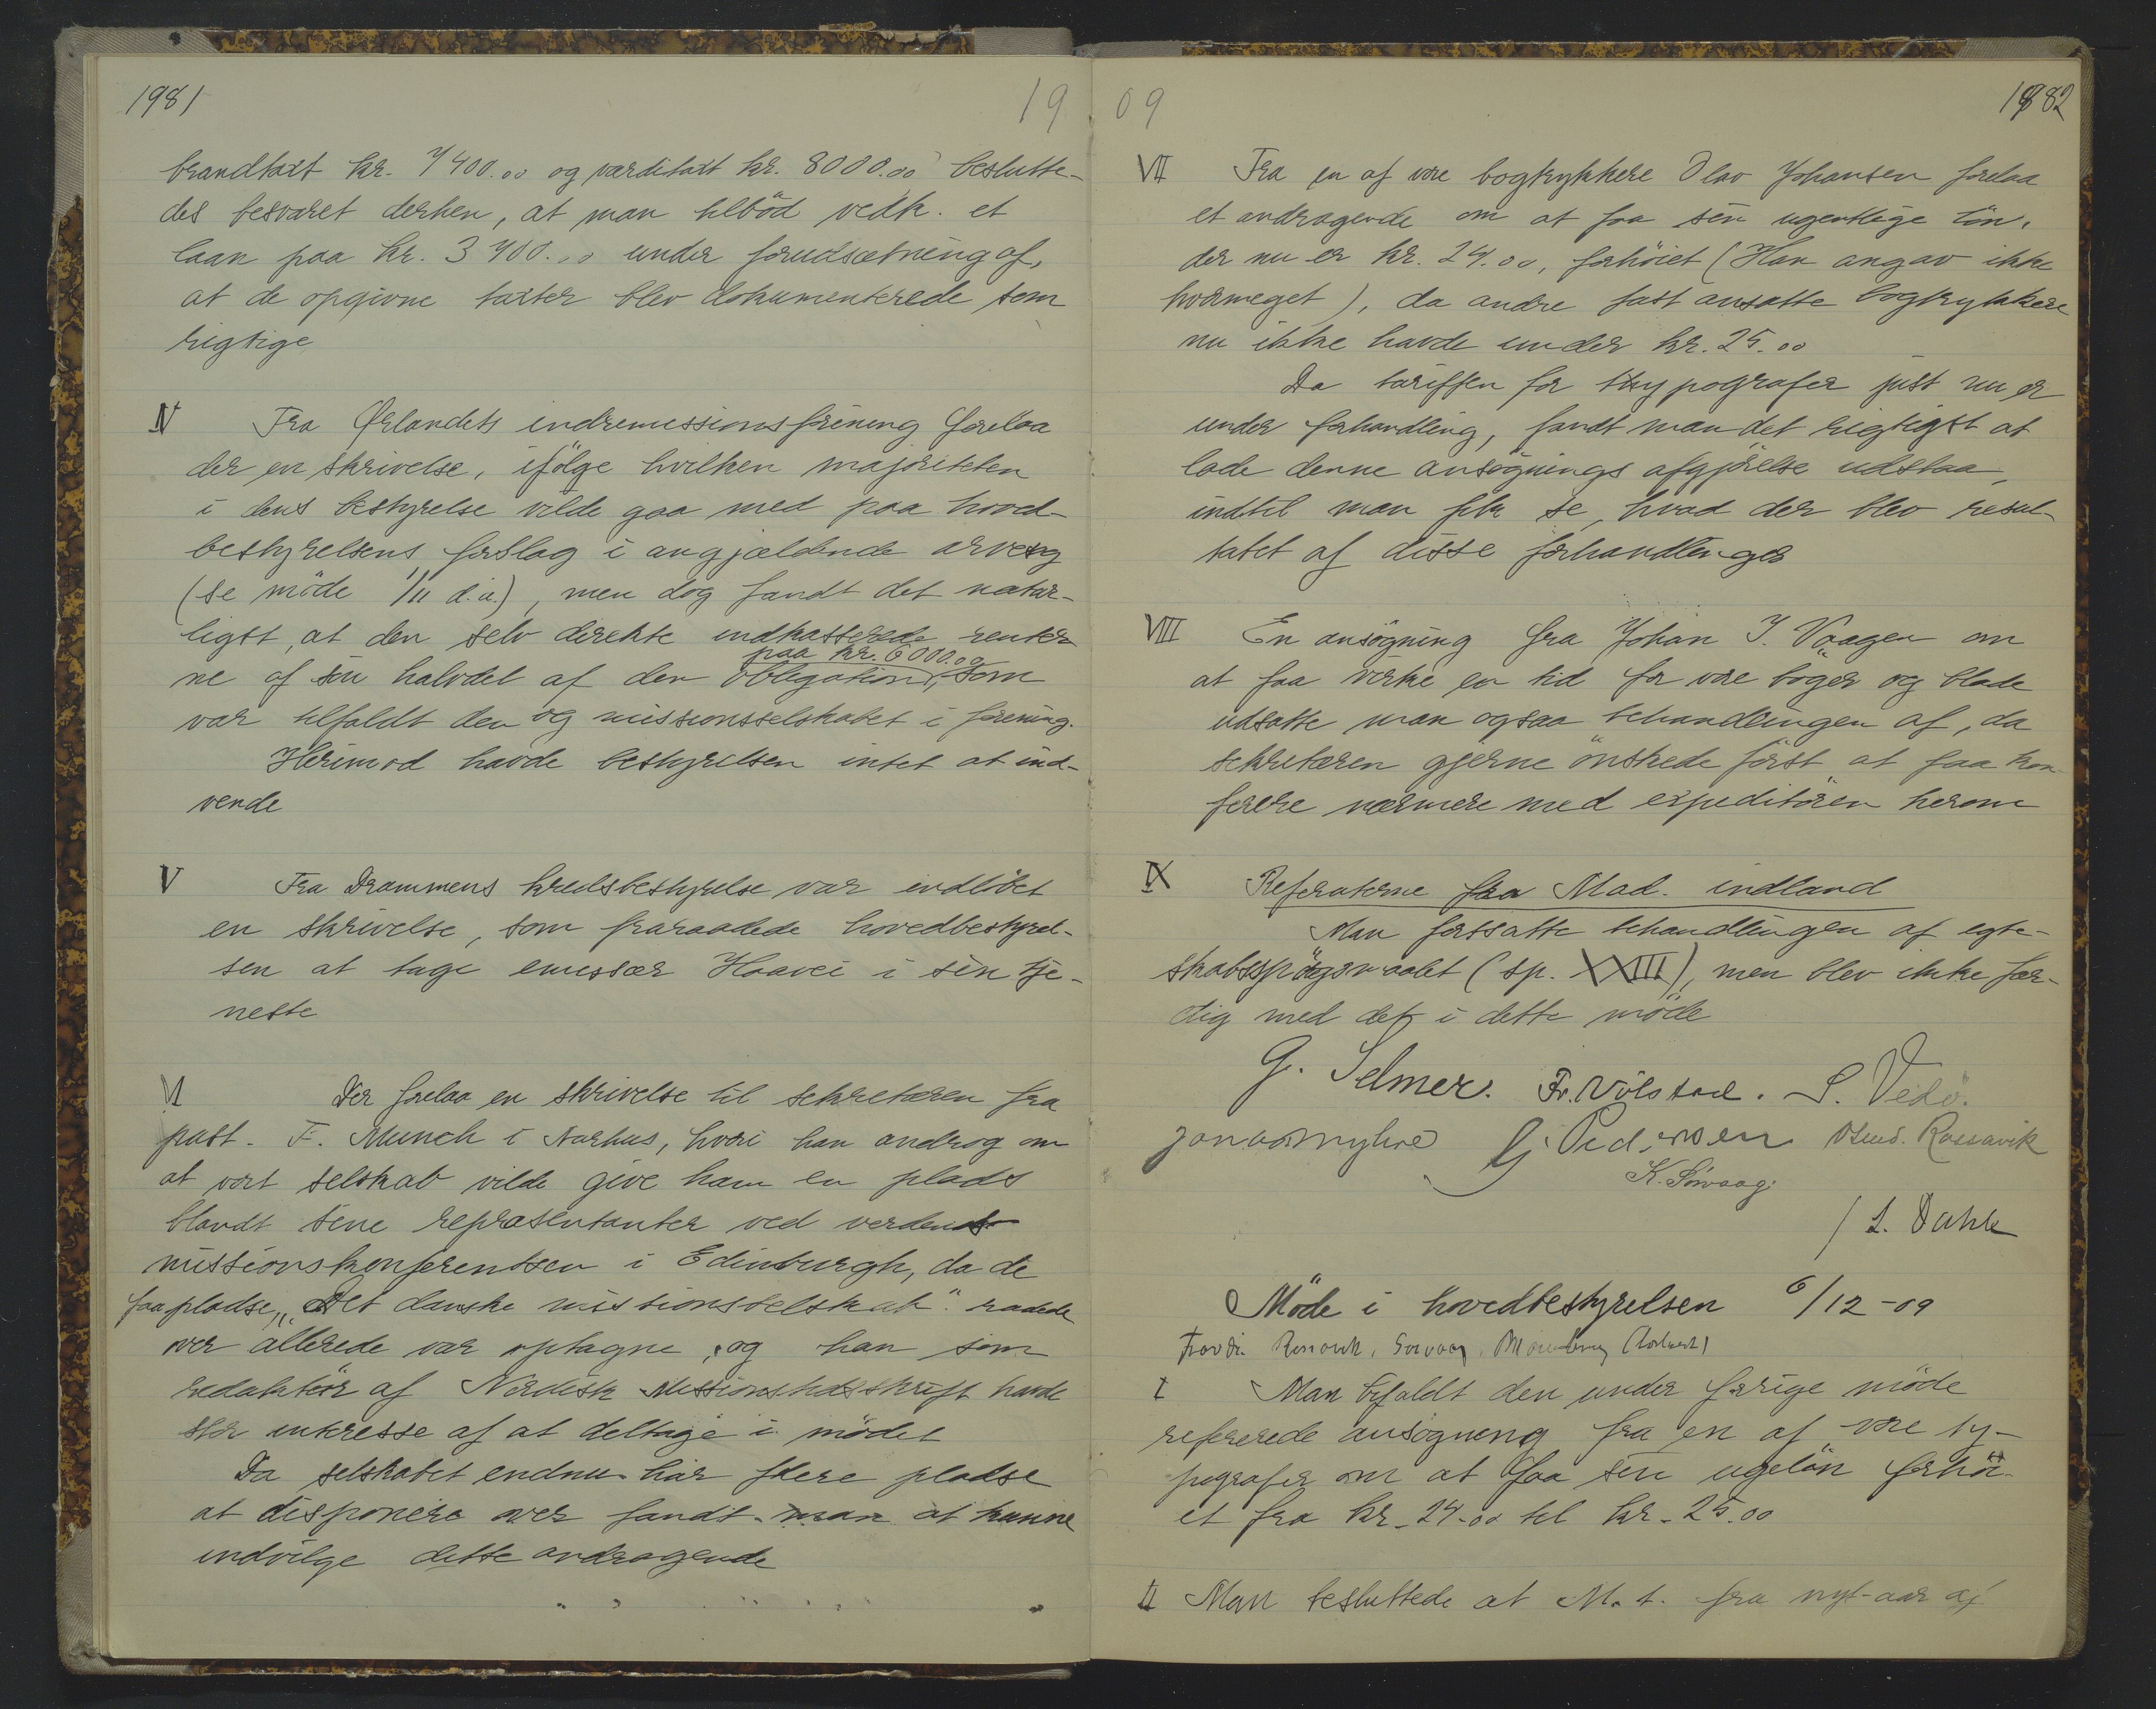 1981
19
brandtaxt kr. 7400.00 og værditaxt kr. 8000.00 beslutte-
des besvaret derhen, at man tilböd vedk. et
laan paa kr. 3700.00 under forudsætning af,
at de opgivne taxter blev dokumenterede som
rigtige
IV Fra Ørlandets indremissionsforening forelaa
der en skrivelse, ifölge hvilken majoriteten
i dens bestyrelse vilde gaa med paa hoved-
bestyrelsens forslag i angjældende arvesag
(se möde 1/11 d.a.), men dog fandt det natur-
ligst, at den selv direkte indkasserede renter
paa kr. 6000.00
ne af sin halvdel af den obligation, som
var tilfaldt den og missionsselskabet i forening.
Herimod havde bestyrelsen intet at ind-
vende
V Fra Drammens kredsbestyrelse var indlöbet
en skrivelse, som fraraadede hovedbestyrel-
sen at tage emissær Haavei i sin tje-
neste
VI Der forelaa en skrivelse til sekretæren fra
past. F. Munck i Aarhus, hvori han androg om
at vort selskab vilde give ham en plads
blandt sine repræsentanter ved verdens-
missionskonferentsen i Edinburgh, da de
faa pladse, "Det danske missionsselskab" raadede
over allerede var optagne, og han som
redaktör af Nordisk Missionstidsskrift havde
stor interesse af at deltage i mödet
Da selskabet endnu har flere pladse
at disponere over fandt man at kunne
indvilge dette andragende
09
1982
VII Fra en af vore bogtrykkere Olav Johansen forelaa
et andragende om at faa sin ugentlige lön,
der nu er kr. 24.00, forhöiet (Han angav ikke
hvormeget), da andre fast ansatte bogtrykkere
nu ikke havde under kr. 25.00
Da tariffen for thypografer just nu er
under forhandling, fandt man det rigtigst at
lade denne ansögnings afgjörelse udstaa,
indtil man fik se, hvad der blev resul-
tatet af disse forhandlinger
VIII En ansögning fra Johan J. Vaagen om
at faa virke en tid for vore böger og blade
udsatte man ogsaa behandlingen af, da
sekretæren gjerne önskede först at faa kon-
ferere nærmere med expeditören herom
IX Referaterne fra Mad. indland
Man fortsatte behandlingen af egte-
skabsspörgsmaalet (sp. XXIII), men blev ikke fær-
dig med det i dette möde
G. Selmer. Fr. Vølstad. S. Vedö.
Jonas Myhre G. Pedersen Rossavik
K. Sørvaag.
/ L. Dahle
Möde i hovedbestyrelsen 6/12-09
Rossavik, Sørvaag,
I Man bifaldt den under forrige möde
refererede ansögning fra en af vore ty-
pografer om at faa sin ugelön forhöi-
et fra kr. 24.00 til kr. 25.00
II Man besluttede at M. t. fra nyt-aar af